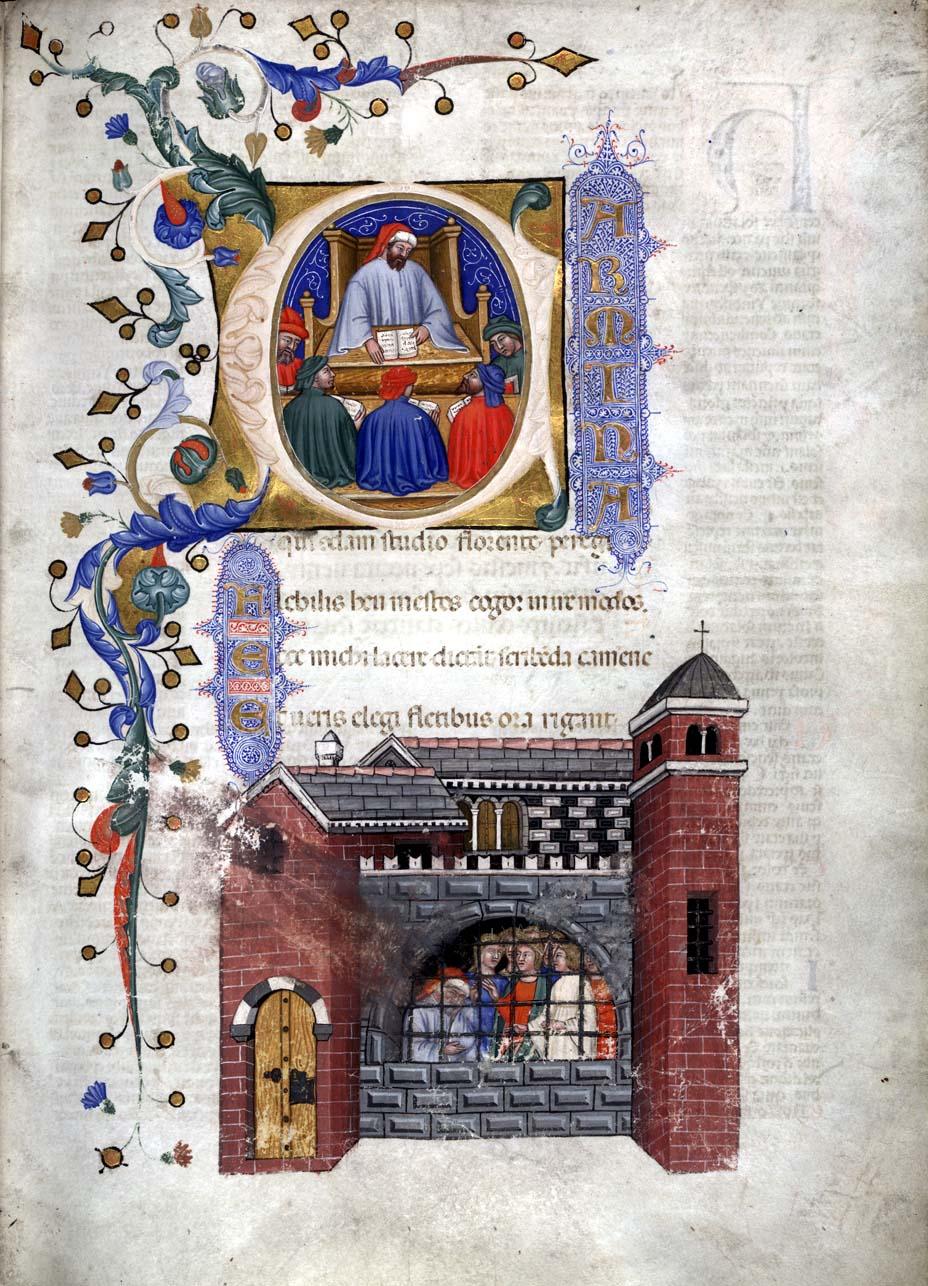 4
CARMINA
qui quōdam studio florente peregi
Flebilis heu mestos cogor inire modos.
Ecce michi lacere dictāt scribēda camene
Et ueris elegi fletibus ora rigant.